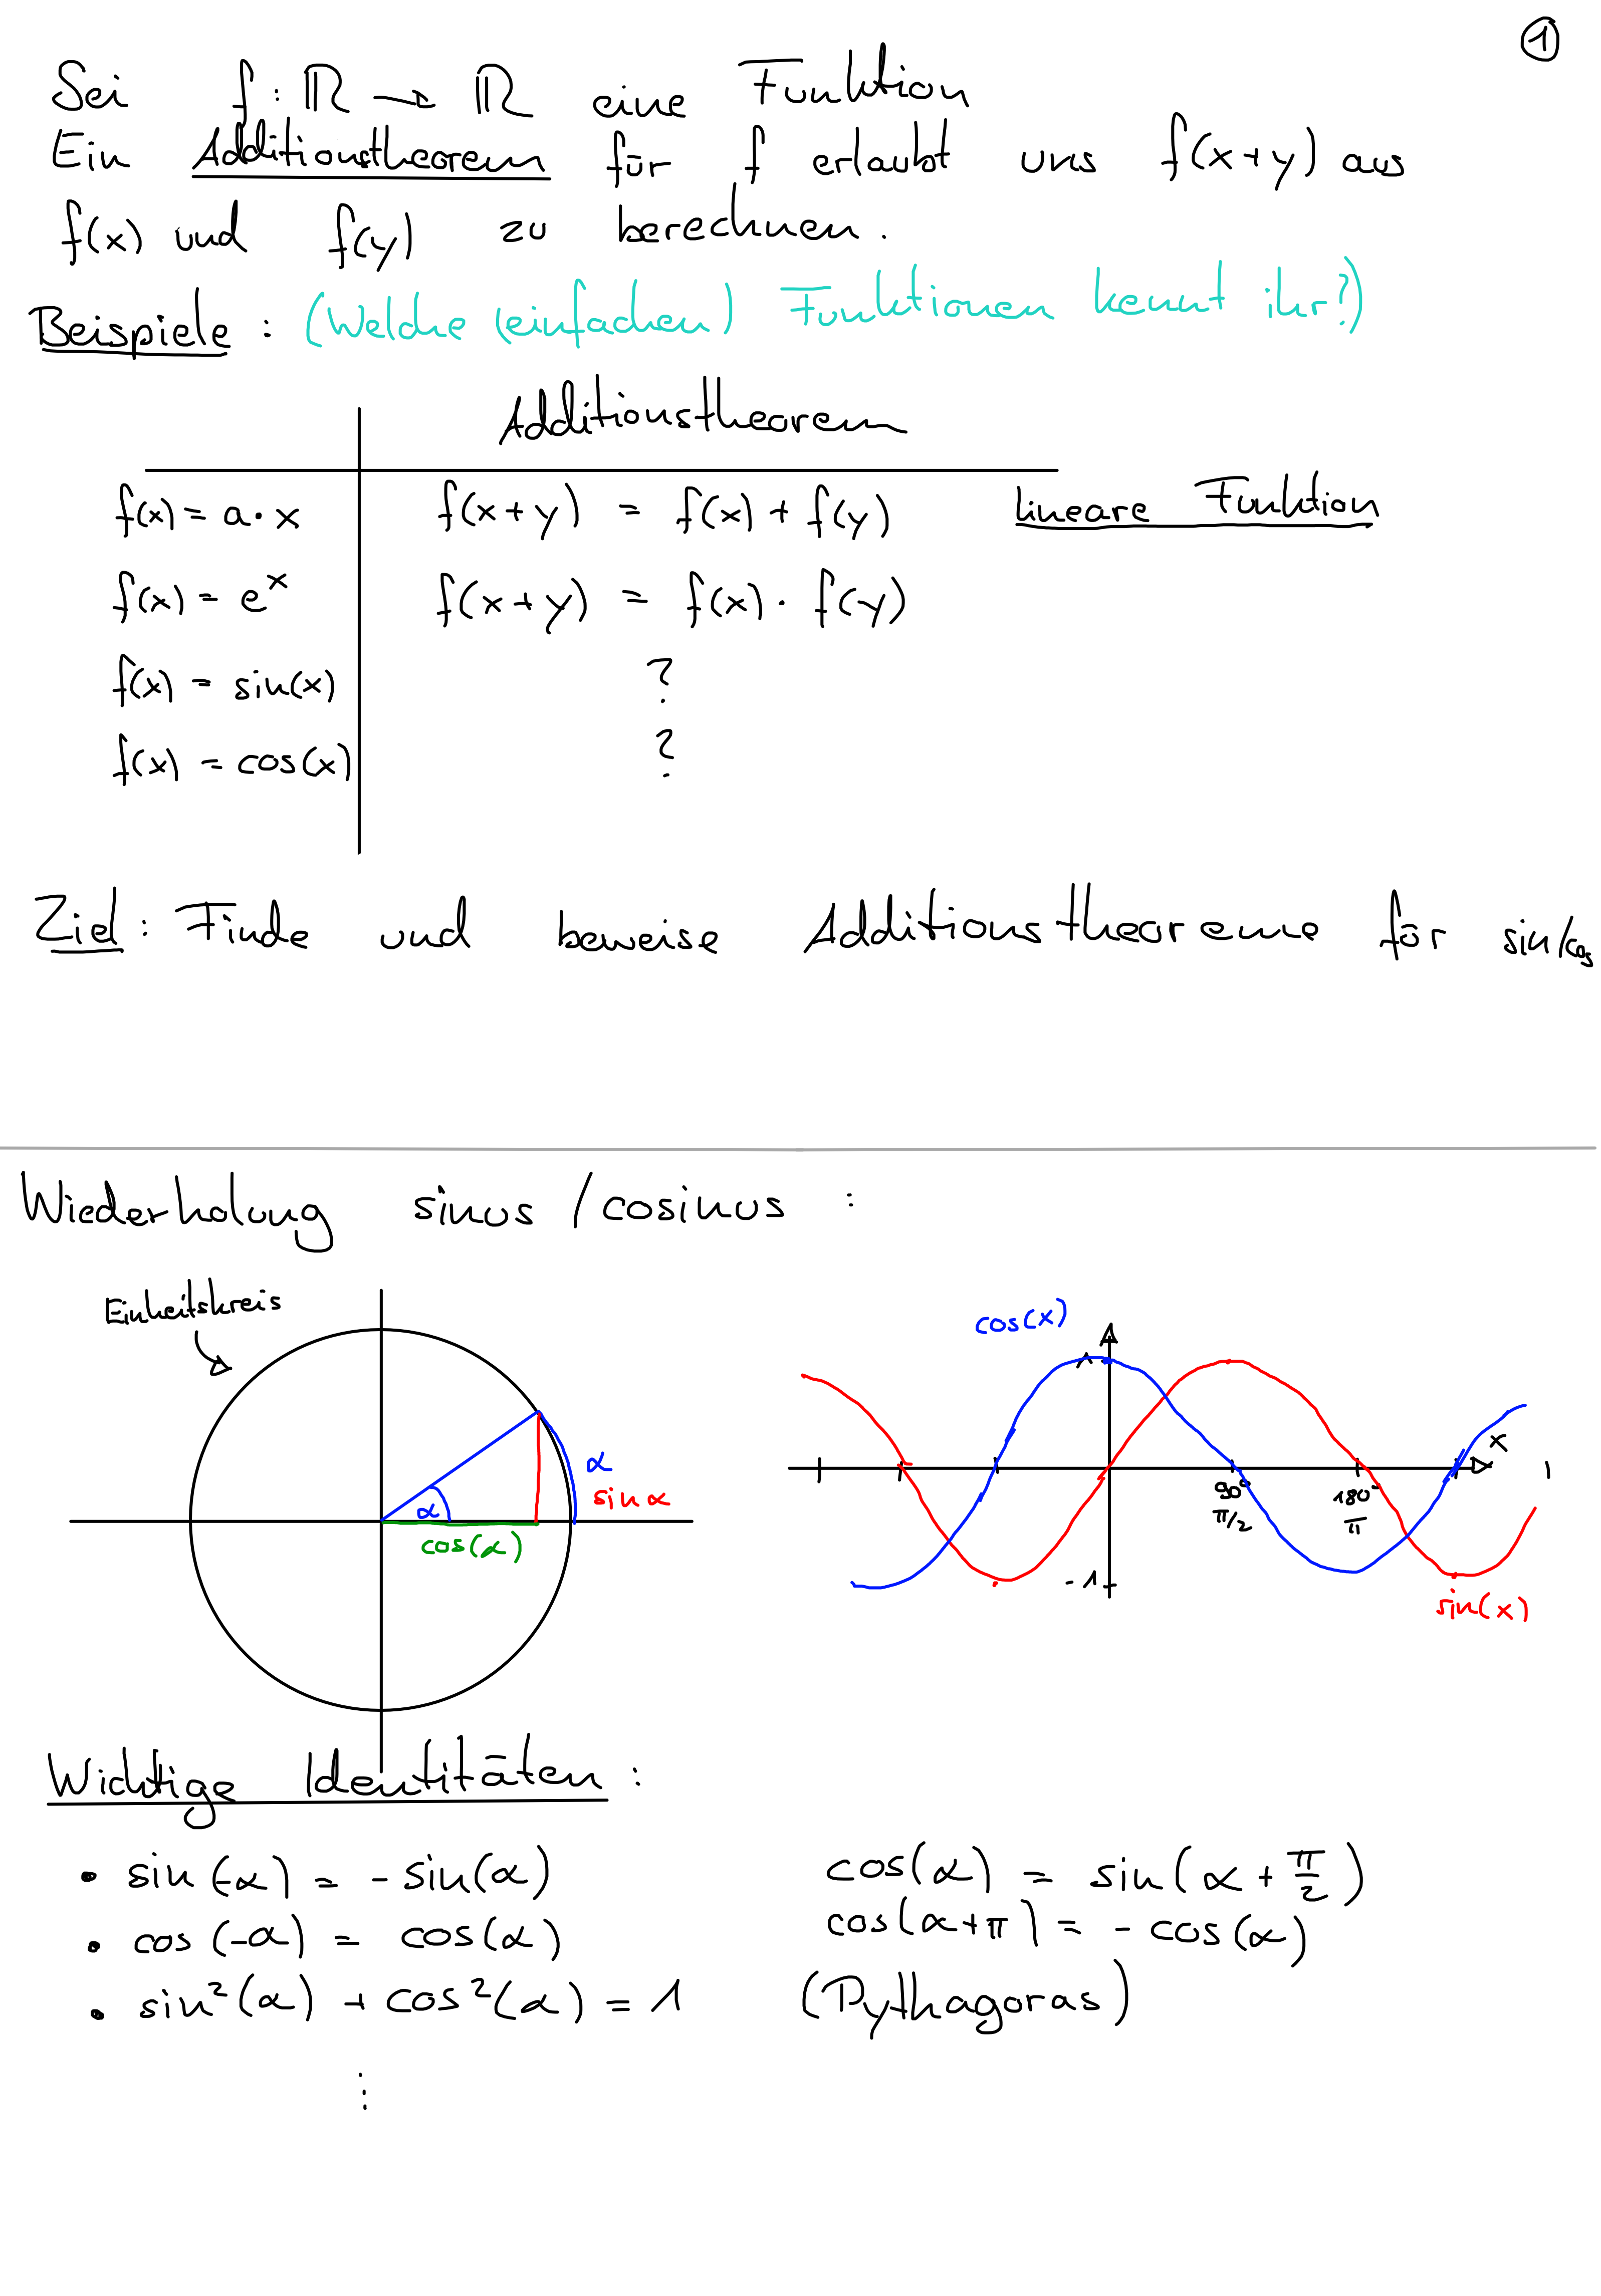 ①
Sei f: ℝ → ℝ eine Funktion
Ein Additionstheorem für f erlaubt uns f(x+y) aus
f(x) und f(y) zu berechnen.
Beispiele: (Welche (einfachen) Funktionen kennt ihr?)
Additionstheorem
f(x) = a·x f(x+y) = f(x) + f(y) lineare Funktion
f(x) = e^x f(x+y) = f(x) · f(y)
f(x) = sin(x) ?
f(x) = cos(x) ?
Ziel: Finde und beweise Additionstheoreme für sin/cos
Wiederholung sinus / cosinus :
Einheitskreis
α
α
sin α
cos(α)
cos(x)
1
x
90° 180°
π/2 π
-1
sin(x)
Wichtige Identitäten :
• sin(-α) = - sin(α) cos(α) = sin(α + π/2)
• cos(-α) = cos(α) cos(α+π) = - cos(α)
• sin²(α) + cos²(α) = 1 (Pythagoras)
⋮